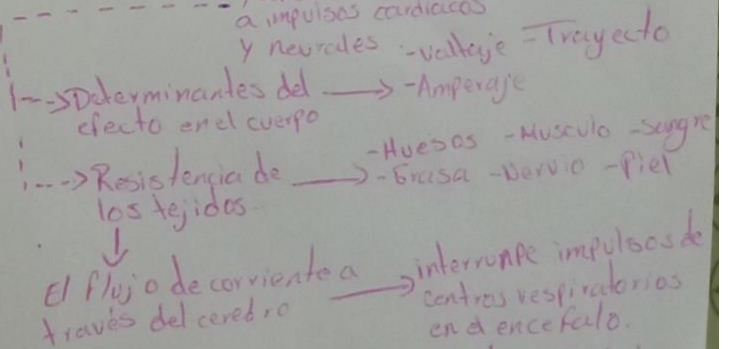 a impulsos cardiacos
y neurales
-Voltaje -Trayecto
Determinantes del
efecto en el cuerpo
-Amperaje
Resistencia de
los tejidos
-Huesos -Musculo -Sangre
-Grasa -Nervio -Piel
El flujo de corriente a
través del cerebro
interrumpe impulsos de
centros respiratorios
en el encefalo.